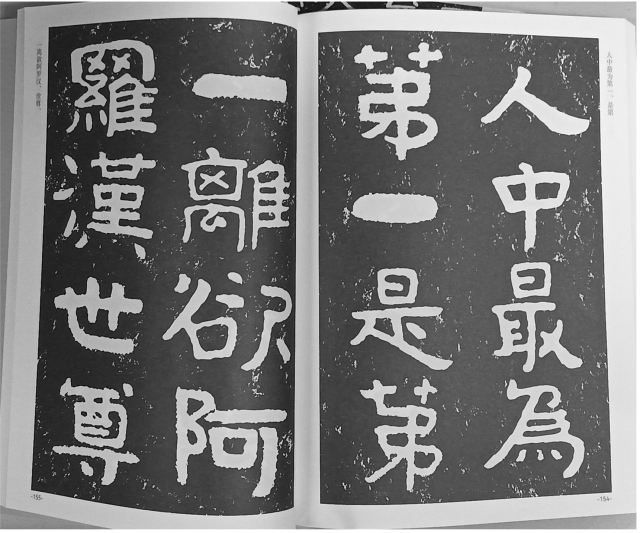 人中最為
第一是第
一離欲阿
羅漢世尊
人中最为第一，是第
一离欲阿罗汉。世尊，
-154-
-155-